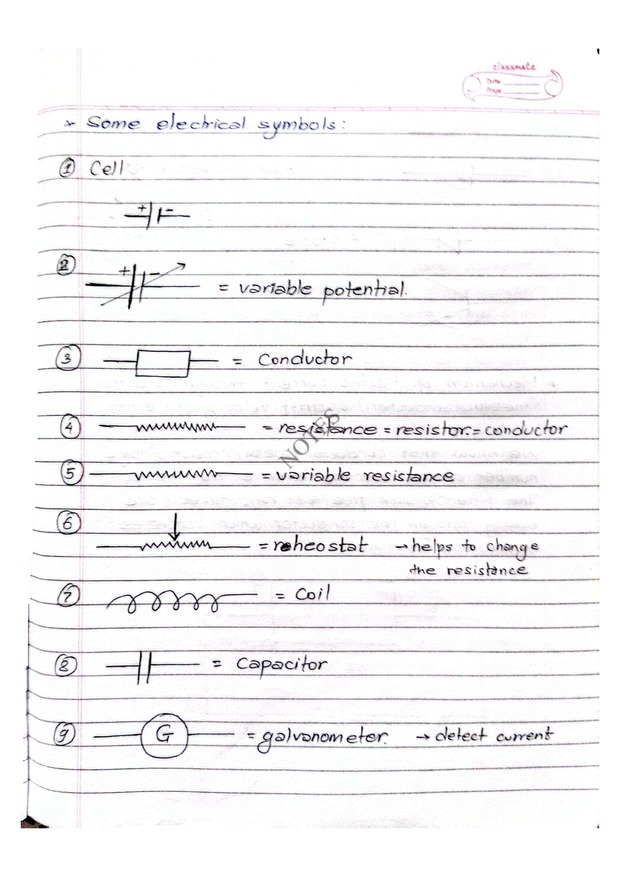 classmate
Date
Page
* Some electrical symbols:
① Cell
+ -
②
+ - = variable potential.
③ = Conductor
④ = resistance = resistor = conductor
NOTES
⑤ = variable resistance
⑥ = reheostat → helps to change
the resistance
⑦ = Coil
⑧ = Capacitor
⑨ G = galvanometer. → detect current